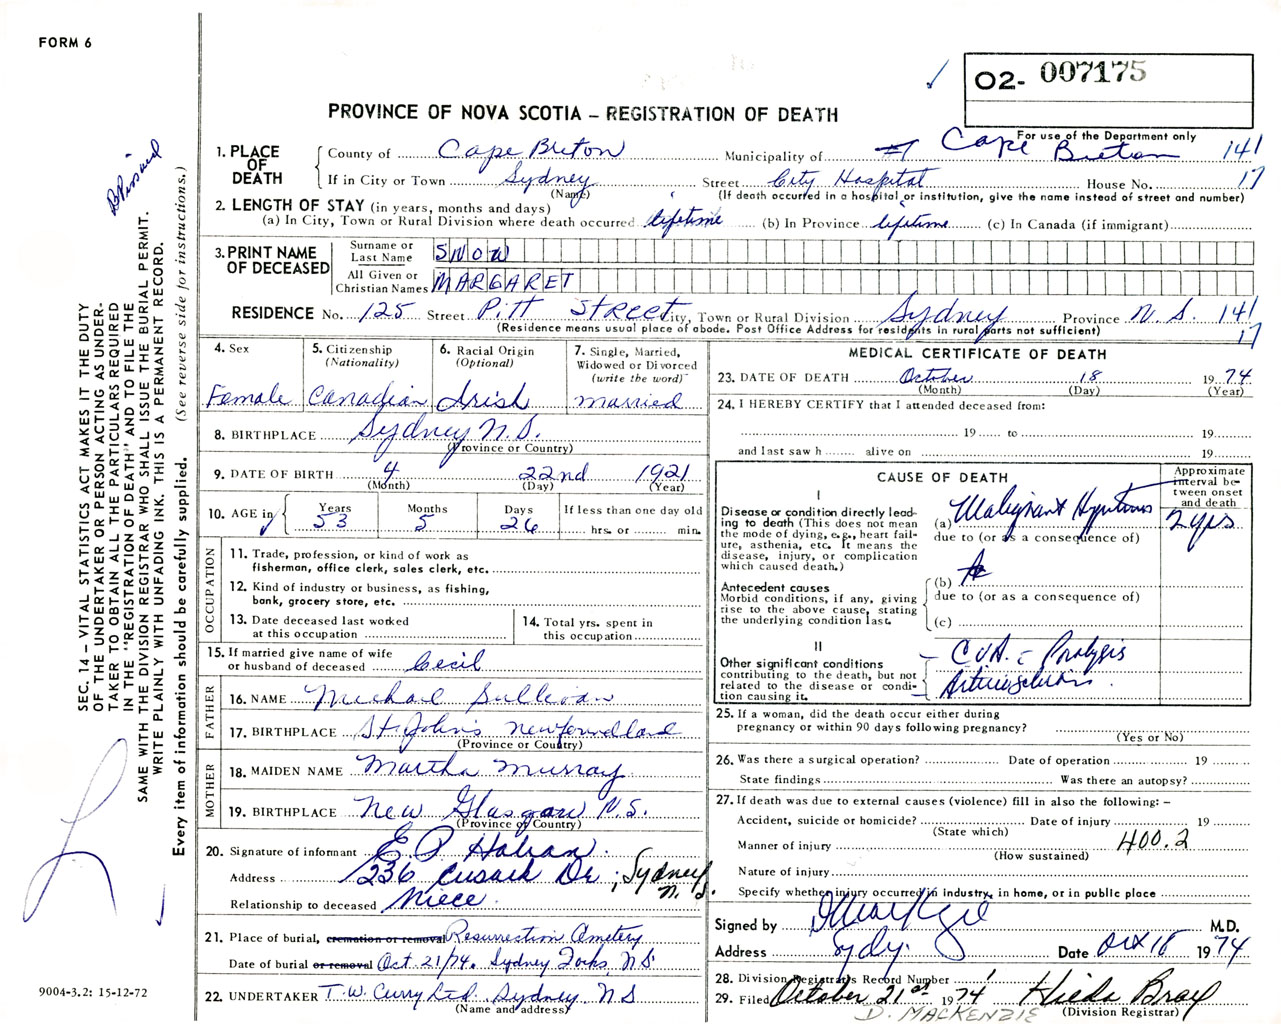 FORM 6
O2- 007175
PROVINCE OF NOVA SCOTIA – REGISTRATION OF DEATH
For use of the Department only
1. PLACE OF DEATH
County of Cape Breton Municipality of #7 Cape Breton 141
If in City or Town Sydney Street City Hospital House No. 17
(Name) (If death occurred in a hospital or institution, give the name instead of street and number)
2. LENGTH OF STAY (in years, months and days)
(a) In City, Town or Rural Division where death occurred lifetime (b) In Province lifetime (c) In Canada (if immigrant)
3. PRINT NAME OF DECEASED
Surname or Last Name SNOW
All Given or Christian Names MARGARET
RESIDENCE No. 125 Street Pitt Street City, Town or Rural Division Sydney Province N.S. 141
17
(Residence means usual place of abode. Post Office Address for residents in rural parts not sufficient)
4. Sex
Female
5. Citizenship
(Nationality)
Canadian
6. Racial Origin
(Optional)
Irish
7. Single, Married,
Widowed or Divorced
(write the word)
Married
8. BIRTHPLACE Sydney N.S.
(Province or Country)
9. DATE OF BIRTH 4 22nd 1921
(Month) (Day) (Year)
10. AGE in
Years Months Days If less than one day old
53 5 26 hrs. or min.
OCCUPATION
11. Trade, profession, or kind of work as
fisherman, office clerk, sales clerk, etc.
12. Kind of industry or business, as fishing,
bank, grocery store, etc.
13. Date deceased last worked
at this occupation
14. Total yrs. spent in
this occupation
15. If married give name of wife
or husband of deceased Cecil
FATHER
16. NAME Michael Sullivan
17. BIRTHPLACE St. John's Newfoundland
(Province or Country)
MOTHER
18. MAIDEN NAME Martha Murray
19. BIRTHPLACE New Glasgow N.S.
(Province or Country)
20. Signature of informant E P
Address 236 Cusack Dr, Sydney N.S.
Relationship to deceased Niece
21. Place of burial, cremation or removal Resurrection Cemetery
Date of burial or removal Oct. 21/74. Sydney Forks, N.S.
22. UNDERTAKER T.W. Curry Ltd. Sydney N.S
(Name and address)
MEDICAL CERTIFICATE OF DEATH
23. DATE OF DEATH October 18 1974
(Month) (Day) (Year)
24. I HEREBY CERTIFY that I attended deceased from:
19 to 19
and last saw h alive on 19
CAUSE OF DEATH
Approximate
interval be-
tween onset
and death
I
Disease or condition directly lead-
ing to death (This does not mean
the mode of dying, e.g., heart fail-
ure, asthenia, etc. It means the
disease, injury, or complication
which caused death.)
(a) Malignant 2 yrs
due to (or as a consequence of)
Antecedent causes
Morbid conditions, if any, giving
rise to the above cause, stating
the underlying condition last.
(b)
due to (or as a consequence of)
(c)
II
Other significant conditions
contributing to the death, but not
related to the disease or condi-
tion causing it.
– CVA Paralysis
25. If a woman, did the death occur either during
pregnancy or within 90 days following pregnancy?
(Yes or No)
26. Was there a surgical operation? Date of operation 19
State findings Was there an autopsy?
27. If death was due to external causes (violence) fill in also the following: –
Accident, suicide or homicide? Date of injury 19
(State which)
Manner of injury 400.2
(How sustained)
Nature of injury
Specify whether injury occurred in industry, in home, or in public place
Signed by M.D.
Address Sydy. Date Oct 18 1974
28. Division Registrar's Record Number
29. Filed October 21st 1974 Hilda Bray
(Division Registrar)
D. MACKENZIE
SEC. 14 – VITAL STATISTICS ACT MAKES IT THE DUTY
OF THE UNDERTAKER OR PERSON ACTING AS UNDER-
TAKER TO OBTAIN ALL THE PARTICULARS REQUIRED
IN THE "REGISTRATION OF DEATH" AND TO FILE THE
SAME WITH THE DIVISION REGISTRAR WHO SHALL ISSUE THE BURIAL PERMIT.
WRITE PLAINLY WITH UNFADING INK. THIS IS A PERMANENT RECORD.
Every item of information should be carefully supplied. (See reverse side for instructions.)
9004-3.2: 15-12-72